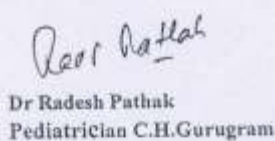 Dr Radesh Pathak
Pediatrician C.H.Gurugram